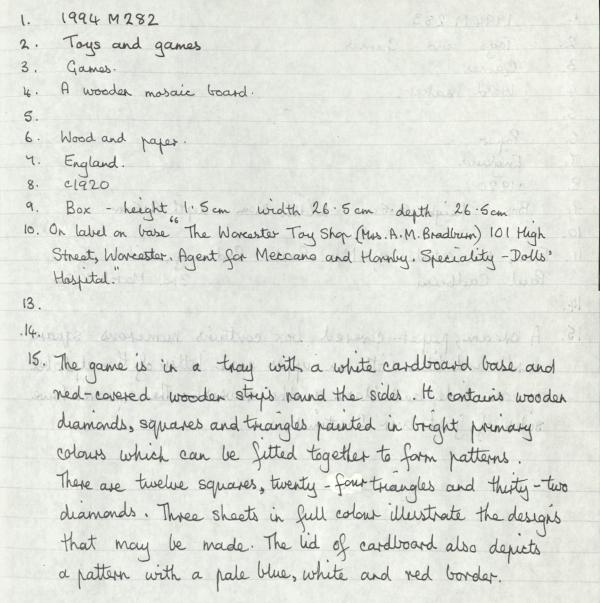 1. 1994 M 282
2. Toys and games
3. Games.
4. A wooden mosaic board.
5.
6. Wood and paper.
7. England.
8. c1920
9. Box - height 1.5cm width 26.5cm depth 26.5cm
10. On label on base "The Worcester Toy Shop (Mrs. A.M. Bradburn) 101 High
Street, Worcester. Agent for Meccano and Hornby. Speciality - Dolls'
Hospital."
13.
14.
15. The game is in a tray with a white cardboard base and
red-covered wooden strips round the sides. It contains wooden
diamonds, squares and triangles painted in bright primary
colours which can be fitted together to form patterns.
There are twelve squares, twenty-four triangles and thirty-two
diamonds. Three sheets in full colour illustrate the designs
that may be made. The lid of cardboard also depicts
a pattern with a pale blue, white and red border.